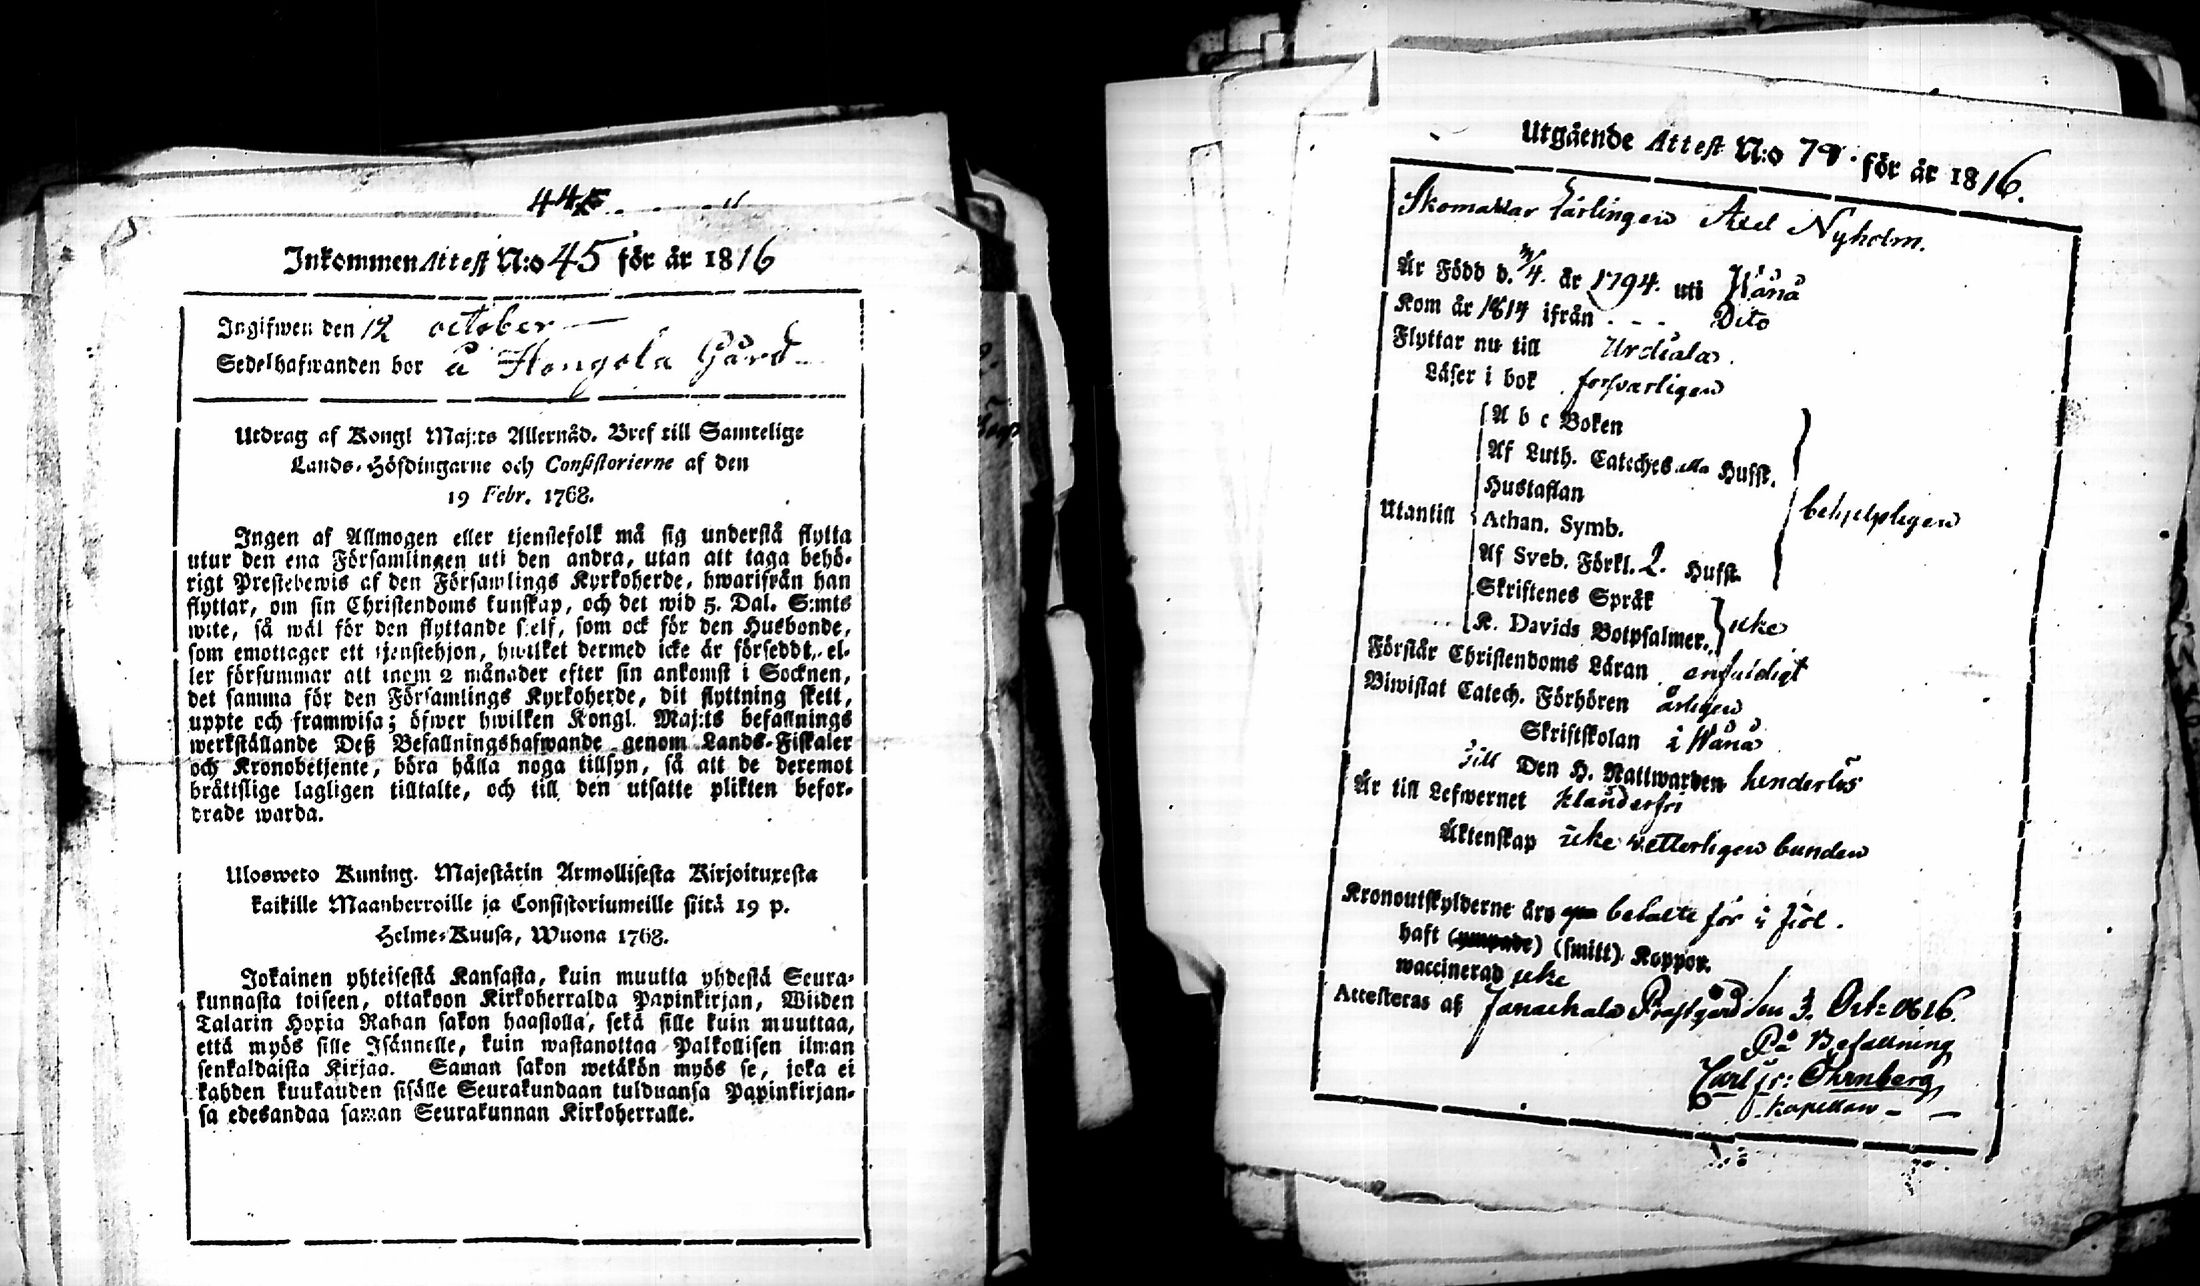 445
Inkommen Attest N:o 45 för år 1816
Ingifwen den 12 october
Sedelhafwanden bor å Hongola Gård
Utdrag af Kongl Maj:ts Allernåd. Bref till Samtelige
Lands-Höfdingarne och Consistorierne af den
19 Febr. 1768.
Ingen af Allmogen eller tjenstefolk må sig understå flytta
utur den ena Församlingen uti den andra, utan att taga behö-
rigt Prestebewis af den Församlings Kyrkoherde, hwarifrån han
flyttar, om sin Christendoms kunskap, och det wid 5. Dal. S:mts
wite, så wäl för den flyttande sjelf, som ock för den Husbonde,
som emottager ett tjenstehjon, hwilket dermed icke är förseddt, el-
ler försummar att inom 2 månader efter sin ankomst i Socknen,
det samma för den Församlings Kyrkoherde, dit flyttning skett,
uppte och framwisa; öfwer hwilken Kongl. Maj:ts befallnings
werkställande Deß Befallningshafwande genom Lands-Fiskaler
och Kronobetjente, böra hålla noga tillsyn, så att de deremot
bråttslige lagligen tilltalte, och till den utsatte plikten befor-
drade warda.
Ulosweto Kuning. Majestätin Armollisesta Kirjoituxesta
kaikille Maanherroille ja Consistoriumeille siitä 19 p.
Helme-Kuusa, Wuona 1768.
Jokainen yhteisestä Kansasta, kuin muutta yhdestä Seura-
kunnasta toiseen, ottakoon Kirkoherralda Papinkirjan, Wiiden
Talarin Hopia Rahan sakon haastolla, sekä sille kuin muuttaa,
että myös sille Isännelle, kuin wastanottaa Palkollisen ilman
senkaldaista Kirjaa. Saman sakon wetäkön myös se, joka ei
kahden kuukauden sisälle Seurakundaan tulduansa Papinkirjan-
sa edesandaa saman Seurakunnan Kirkoherralle.
Utgående Attest N:o 79. för år 1816.
Skomakar Lärlingen Axel Nyholm.
Är Född d. /4. år 1794. uti Wånå
Kom år 1814 ifrån - - - Dito
Flyttar nu till Urdiala.
Läser i bok forsvarligen
Utantill
A b c Boken
Af Luth. Cateches alla Hufst.
Hustaflan
Athan. Symb.
Af Sveb. Förkl. 2. Hufst.
behjelpligen
Skriftenes Språk
K. Davids Botpsalmer.
icke
Förstår Christendoms Läran enfaldigt
Biwistat Catech. Förhören årligen
Skriftskolan i Wånå
Till Den H. Nattwarden henderlös
Är till Lefwernet klanderfri
Äktenskap icke wetterligen bunden
Kronoutskylderne äro betalte för i fiol.
haft (ympade) (smitt) Koppor.
waccinerad icke
Attesteras af Janackala Prastgård den 3. Octr 1816.
På Befallning
Carl Fr: Öhrnberg
Kapellan